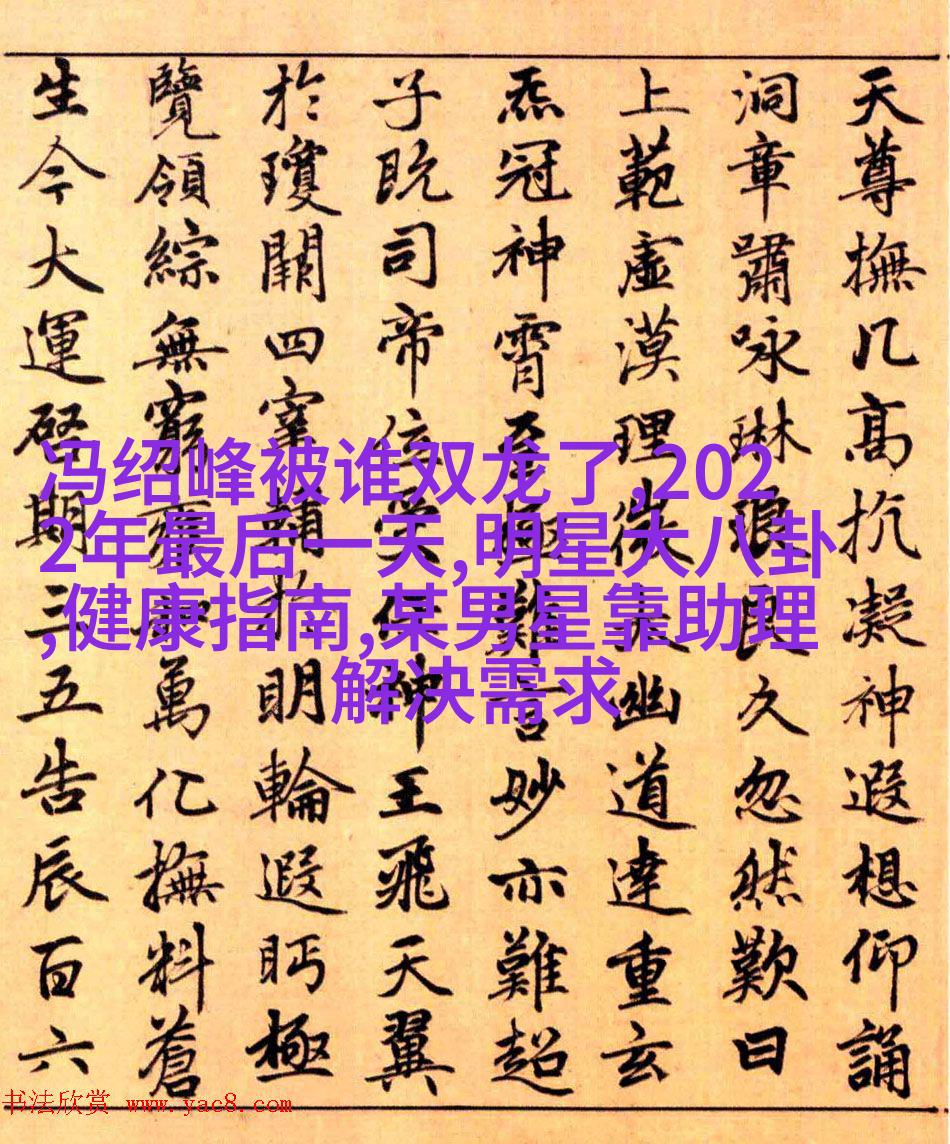 天尊撫几高抗凝神遐想仰誦
洞章嘯咏琳琅良久忽然歎曰
上範虛漠理微幽道達重玄
炁冠神霄至極難言妙亦難超
子既司帝位受神王飛天翼
於瓊闕四宰輔於明輪遐眄極
覽領綜無窮齊萬化撫料蒼
生今大運啓期三五告辰百六
冯绍峰被谁双龙了,202
2年最后一天,明星大八卦
,健康指南,某男星靠助理
解决需求
书法欣赏 www.yac8.com